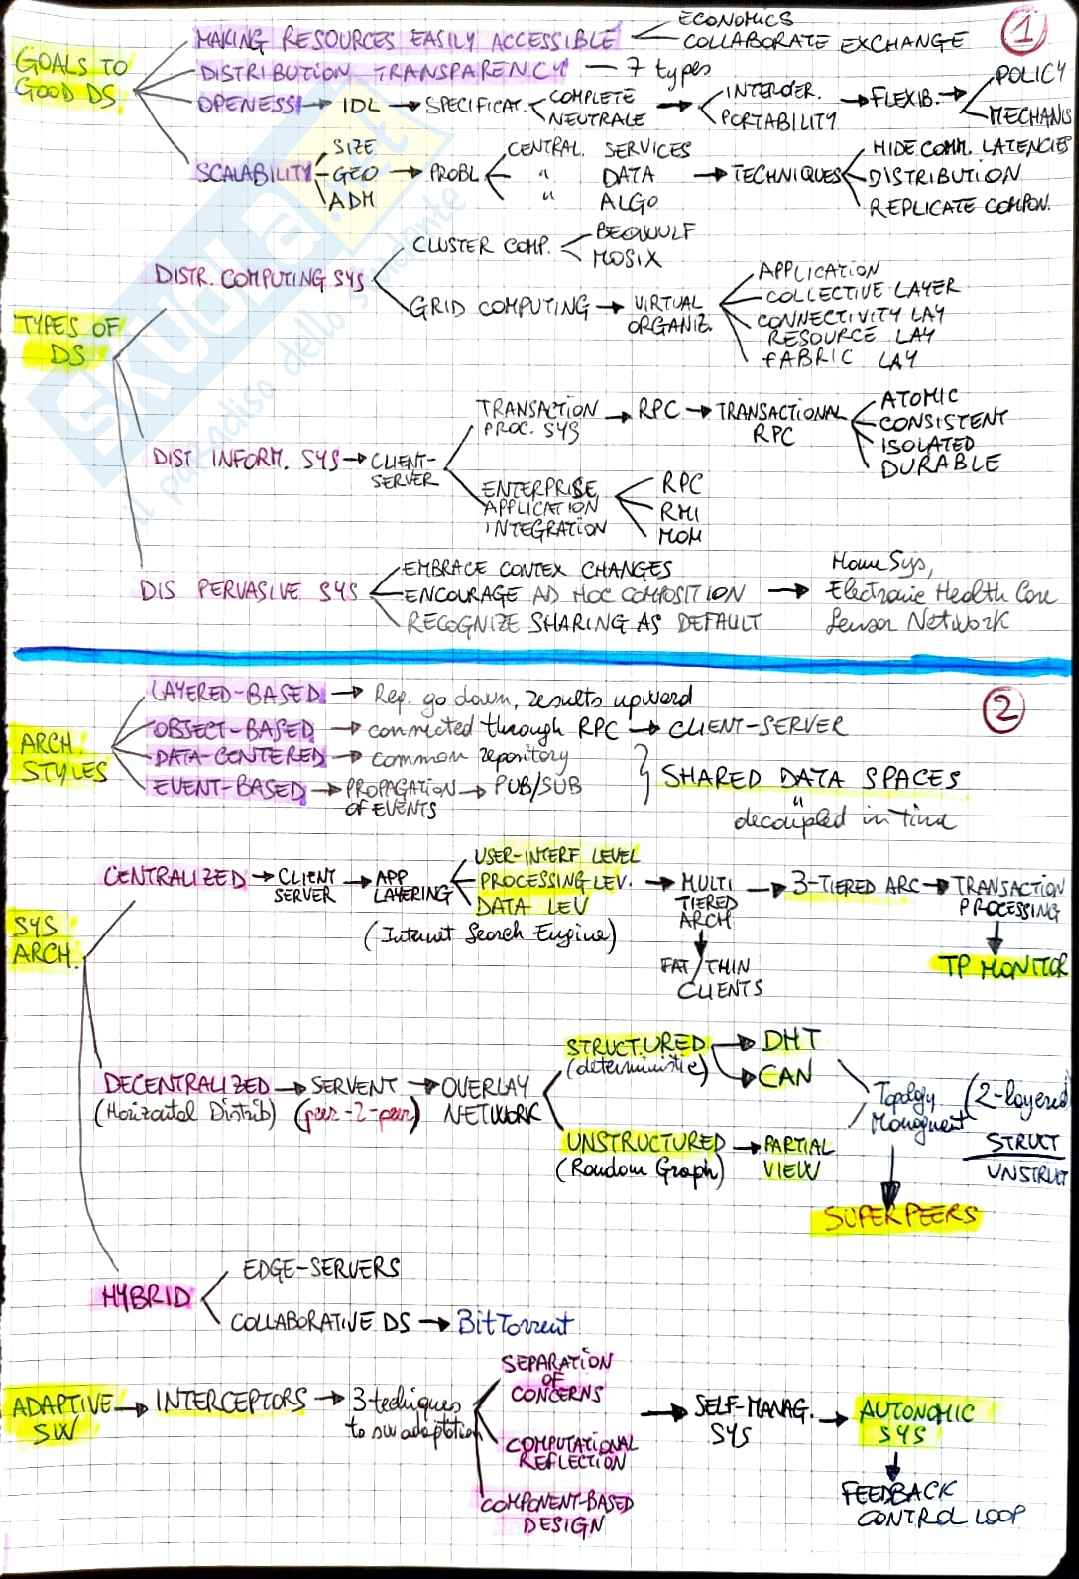 1
GOALS TO
GOOD DS.
MAKING RESOURCES EASILY ACCESSIBLE
ECONOMICS
COLLABORATE EXCHANGE
DISTRIBUTION TRANSPARENCY — 7 types
OPENESS → IDL → SPECIFICAT.
COMPLETE
NEUTRALE
→ INTEROPER.
PORTABILITY
→ FLEXIB. →
POLICY
MECHANIS
SCALABILITY
SIZE
GEO
ADM
→ PROBL
CENTRAL. SERVICES
" DATA
" ALGO
→ TECHNIQUES
HIDE COMM. LATENCIES
DISTRIBUTION
REPLICATE COMPON.
TYPES OF
DS
DISTR. COMPUTING SYS
CLUSTER COMP.
BEOWULF
MOSIX
GRID COMPUTING → VIRTUAL
ORGANIZ.
APPLICATION
COLLECTIVE LAYER
CONNECTIVITY LAY
RESOURCE LAY
FABRIC LAY
DIST INFORM. SYS → CLIENT-
SERVER
TRANSACTION
PROC. SYS
→ RPC → TRANSACTIONAL
RPC
ATOMIC
CONSISTENT
ISOLATED
DURABLE
ENTERPRISE
APPLICATION
INTEGRATION
RPC
RMI
MOM
DIS PERVASIVE SYS
EMBRACE CONTEX CHANGES
ENCOURAGE AD HOC COMPOSITION
RECOGNIZE SHARING AS DEFAULT
→ Home Sys,
Electronic Health Care
Sensor Network
SKUOLA.net
il paradiso dello studente
2
ARCH.
STYLES
LAYERED-BASED → Req. go down, results upward
OBJECT-BASED → connected through RPC → CLIENT-SERVER
DATA-CENTERED → common repository
EVENT-BASED → PROPAGATION
OF EVENTS
→ PUB/SUB
} SHARED DATA SPACES
"
decoupled in time
SYS
ARCH.
CENTRALIZED → CLIENT
SERVER
→ APP
LAYERING
USER-INTERF LEVEL
PROCESSING LEV.
DATA LEV
(Internet Search Engine)
→ MULTI
TIERED
ARCH
→ 3-TIERED ARC → TRANSACTION
PROCESSING
↓
FAT/THIN
CLIENTS
↓
TP MONITOR
DECENTRALIZED → SERVENT → OVERLAY
NETWORK
(Horizontal Distrib) (peer-2-peer)
STRUCTURED
(deterministic)
→ DHT
→ CAN
UNSTRUCTURED → PARTIAL
VIEW
(Random Graph)
Topology
Managment
(2-layered)
STRUCT
UNSTRUCT
↓
SUPERPEERS
HYBRID
EDGE-SERVERS
COLLABORATIVE DS → BitTorrent
ADAPTIVE
SW
→ INTERCEPTORS → 3 techiques
to sw adaptation
SEPARATION
OF
CONCERNS
COMPUTATIONAL
REFLECTION
COMPONENT-BASED
DESIGN
→ SELF-MANAG.
SYS
→ AUTONOMIC
SYS
↓
FEEDBACK
CONTROL LOOP